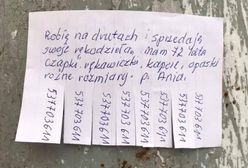 Robię na drutach i sprzedaję
swoje rękodzieła. Mam 72 lata
czapki, rękawiczki, kapcie, opaski
różne rozmiary. p. Ania.
537 703 611
537 703 611
537 703 611
537 703 611
537 703 611
537 703 611
537 703 611
537 703 611